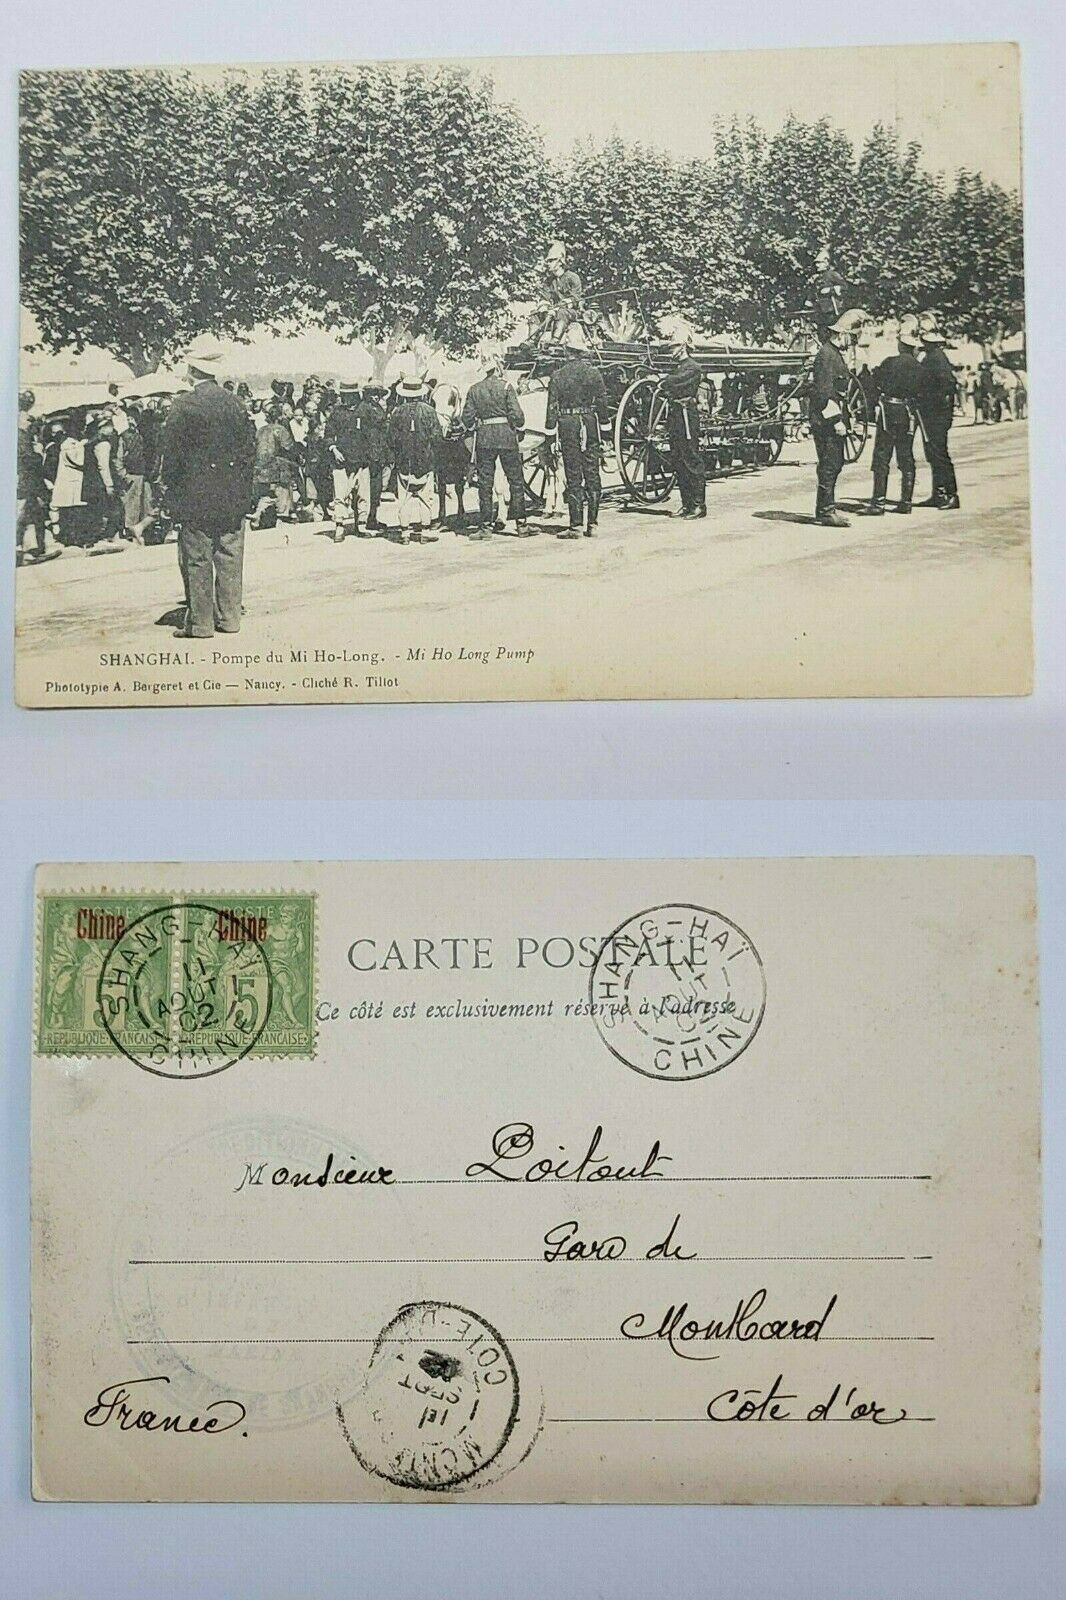 SHANGHAI. - Pompe du Mi Ho-Long. - Mi Ho Long Pump
Phototypie A. Bergeret et Cie — Nancy. - Cliché R. Tillot
Chine
Chine
POSTE
5
5
REPUBLIQUE FRANCAISE
REPUBLIQUE FRANCAISE
SHANG-HAÏ
11
AOUT
02
CHINE
CARTE POSTALE
Ce côté est exclusivement réservé à l'adresse
SHANG-HAÏ
11
AOUT
02
CHINE
Monsieur Poitout
Gare de
Montbard
France. Côte d'or
COTE-D'
SEPT